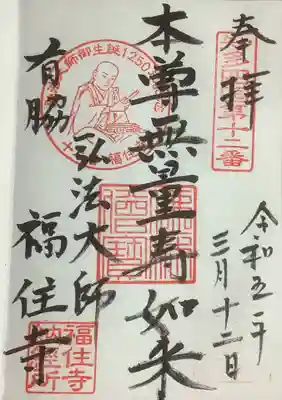 奉拝
第十二番
令和五年
三月十二日
本尊無量寿如来
師御生誕1250
福住寺
弘法大師
有脇 福住寺
福住寺
納経所